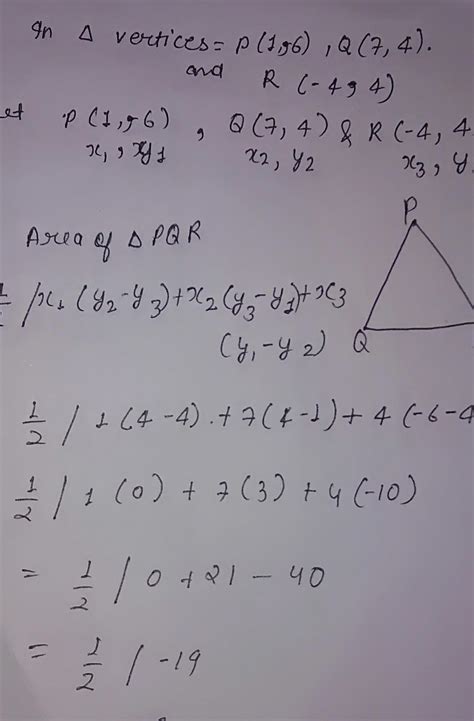 In Δ vertices = P(1,-6) , Q(7, 4).
and R (-4, 4)
et P(1,-6) , Q(7, 4) & R(-4, 4
x₁ , y₁ x₂, y₂ x₃, y
P
Area of Δ PQR
1/2 |x₁ (y₂-y₃)+x₂(y₃-y₁)+x₃
(y₁-y₂) Q
1/2 | 1 (4-4).+7(4-1)+4(-6-4
1/2 | 1 (0) + 7(3) + 4(-10)
= 1/2 | 0 +21 - 40
= 1/2 | -19